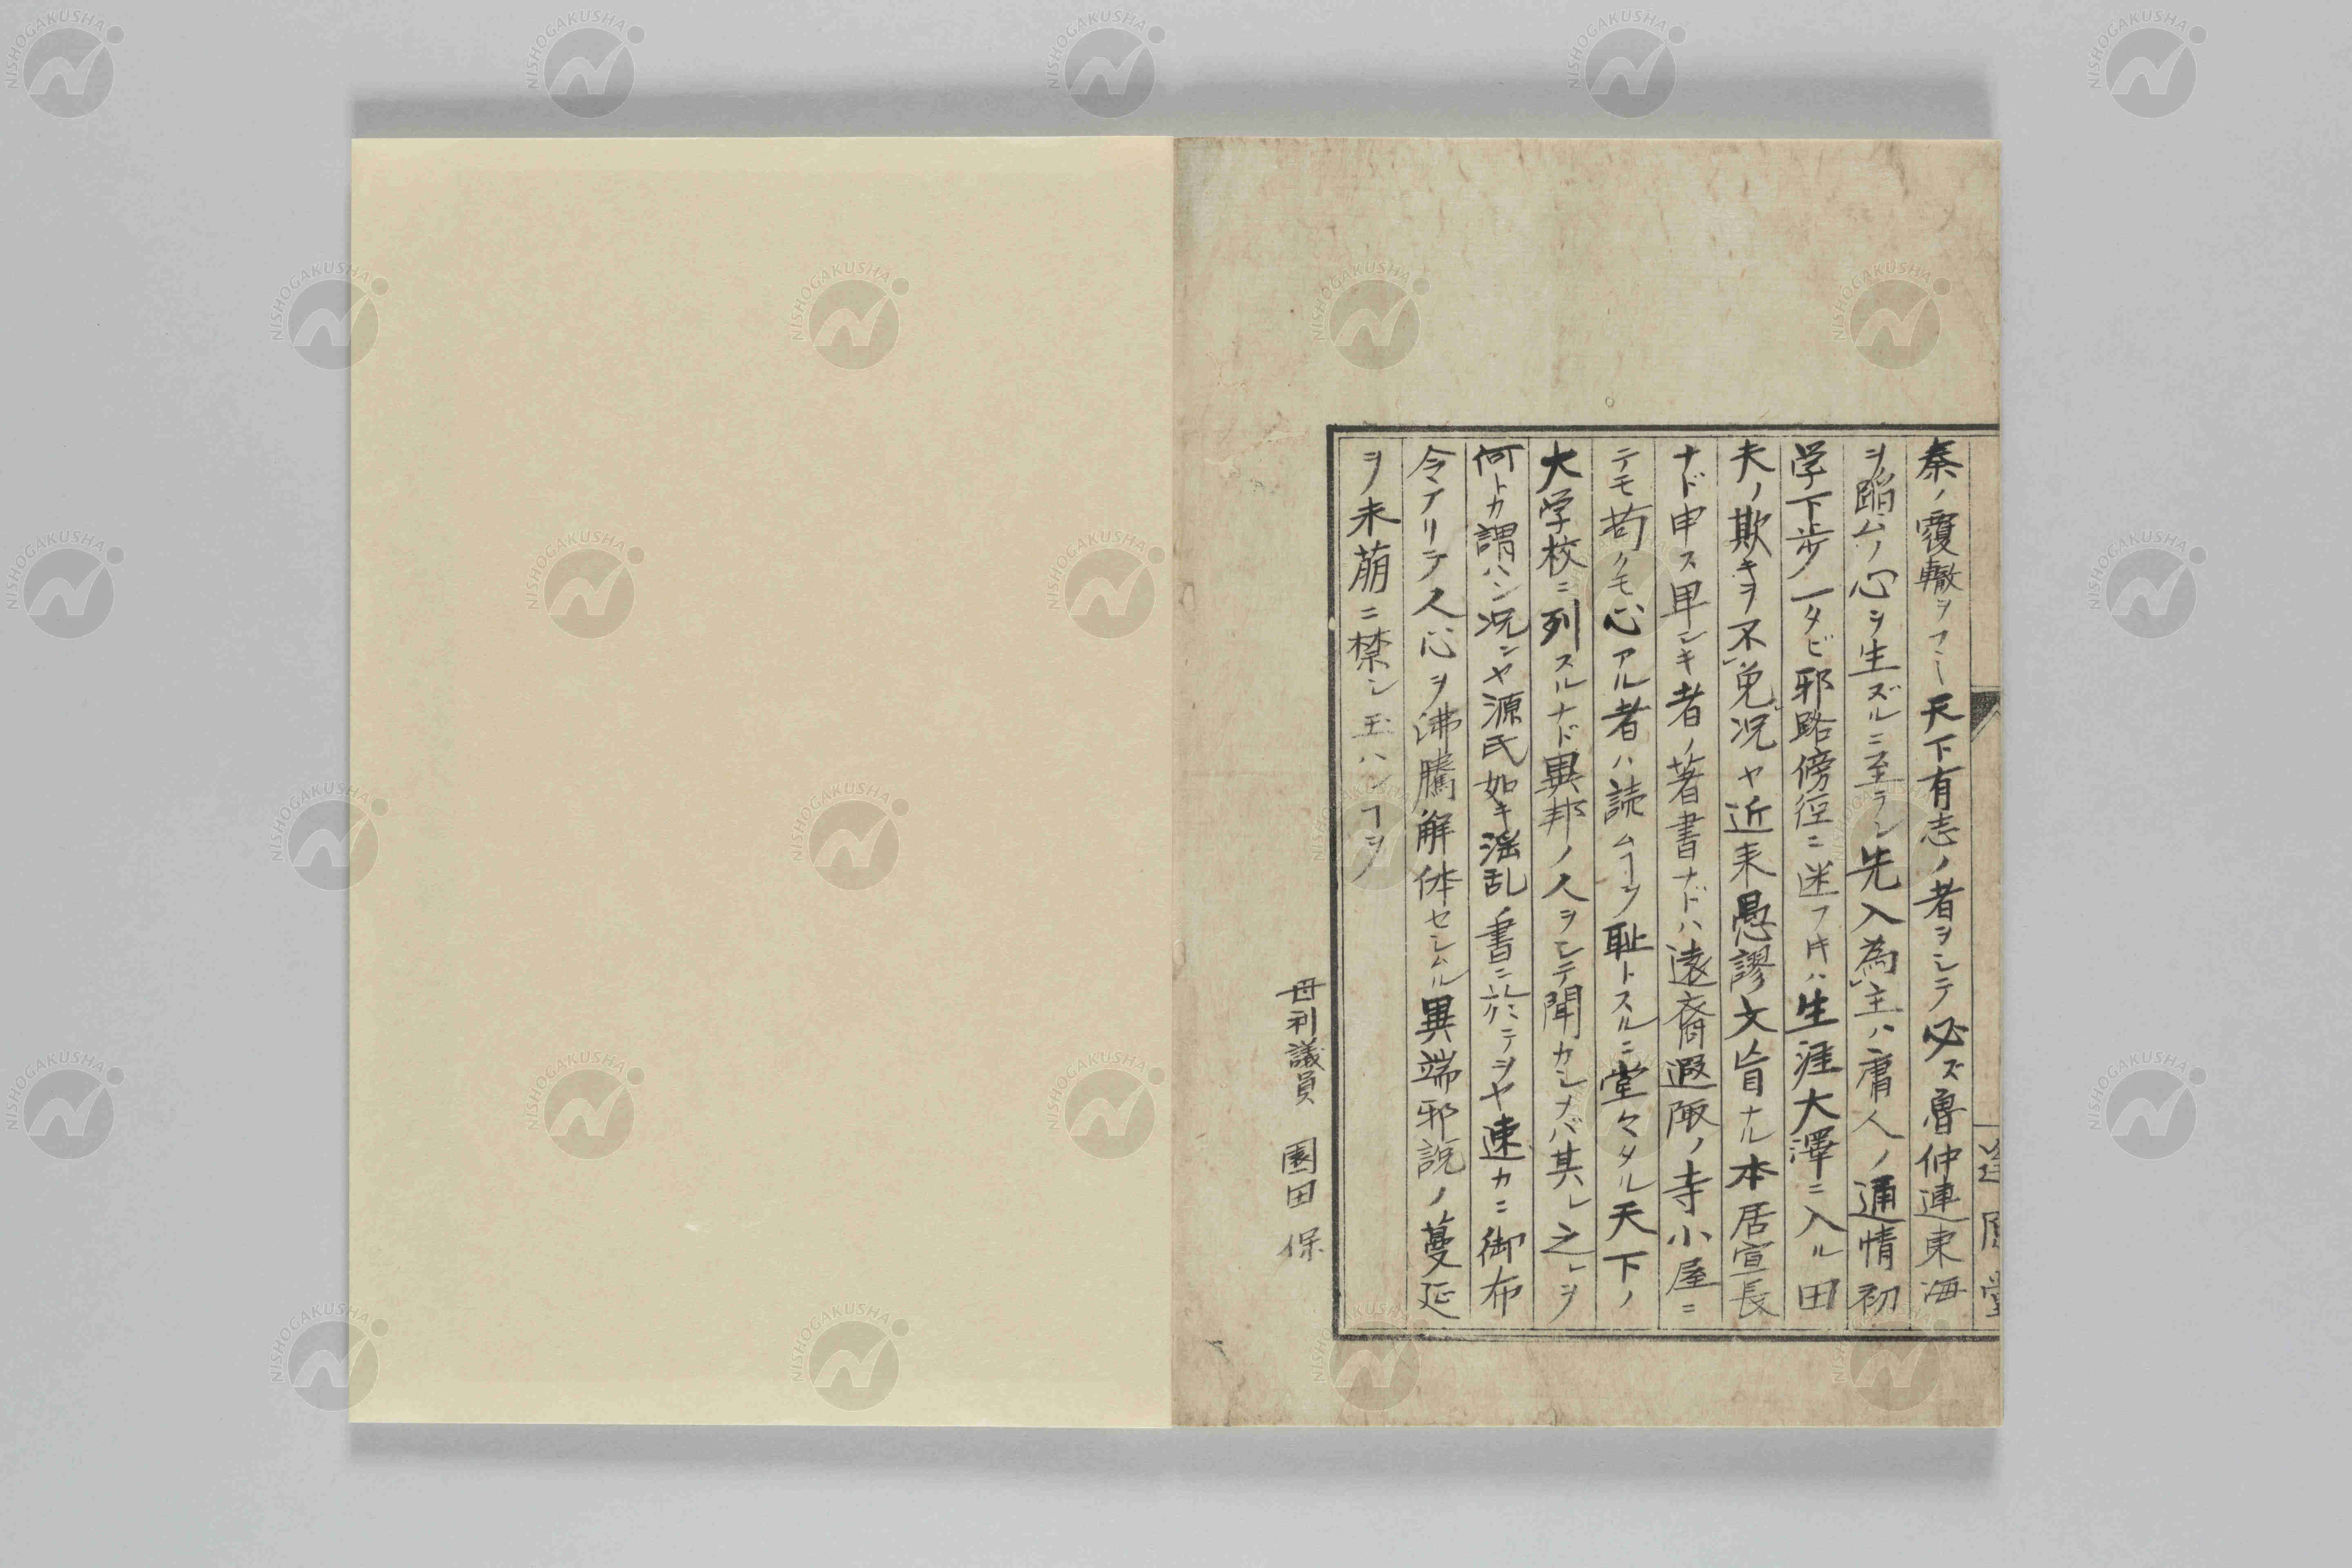 秦ノ覆轍ヲフミ天下有志ノ者ヲシテ必ズ魯仲連東海
ヲ蹈ムノ心ヲ生ズルニ至ラン先入為主ハ庸人ノ通情初
学下歩一タビ邪路傍径ニ迷フ𪜈ハ生涯大澤ニ入ル田
夫ノ欺キヲ不免况ヤ近来愚謬文盲ナル本居宣長
ナド申ス卑シキ者ノ著書ナドハ遠裔遐陬ノ寺小屋ニ
テモ苟クモ心アル者ハ読ムヿヲ耻トスルニ堂々タル天下ノ
大学校ニ列スルナド異邦ノ人ヲシテ聞カシナバ其レ之レヲ
何トカ謂ハン况ンヤ源氏如キ淫乱ノ書ニ於テヲヤ速カニ御布
令アリテ人心ヲ沸騰解体セシムル異端邪説ノ蔓延
ヲ未萠ニ禁シ玉ハンヿヲ
毋利議員 園田保
NISHOGAKUSHA